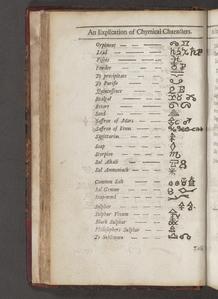 An Explication of Chymical Characters.
Orpiment
Lead
Pisces
Powder
To precipitate
To Purifie
Quintessence
Realgal
Retort
Sand
Saffron of Mars
Saffron of Venus
Sagittarius
Soap
Scorpius
Sal Alkali
Sal Armoniack
Common Salt
Sal Gemme
Sulphur
Sulphur Vivum
Black Sulphur
Philosophers Sulphur
To Sublimate